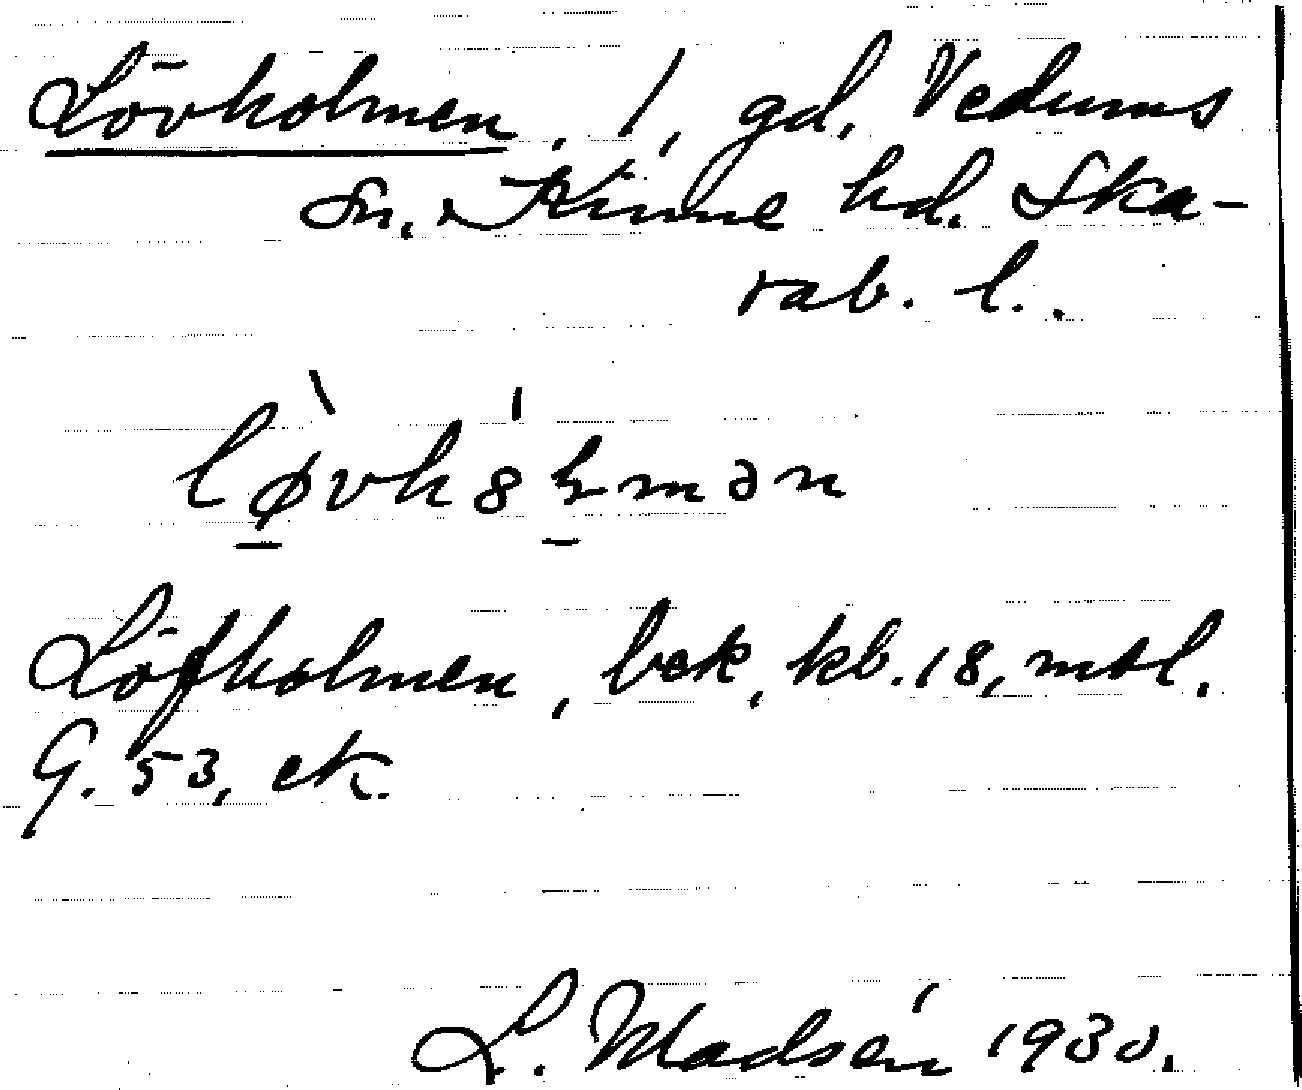 Lövholmen, 1, gd, Vedums
sn, Kinne hd. Ska-
rab. l..
Löfholmen, bek, kb. 18, mtl.
G. 53, ek.
L. Madsén 1930.